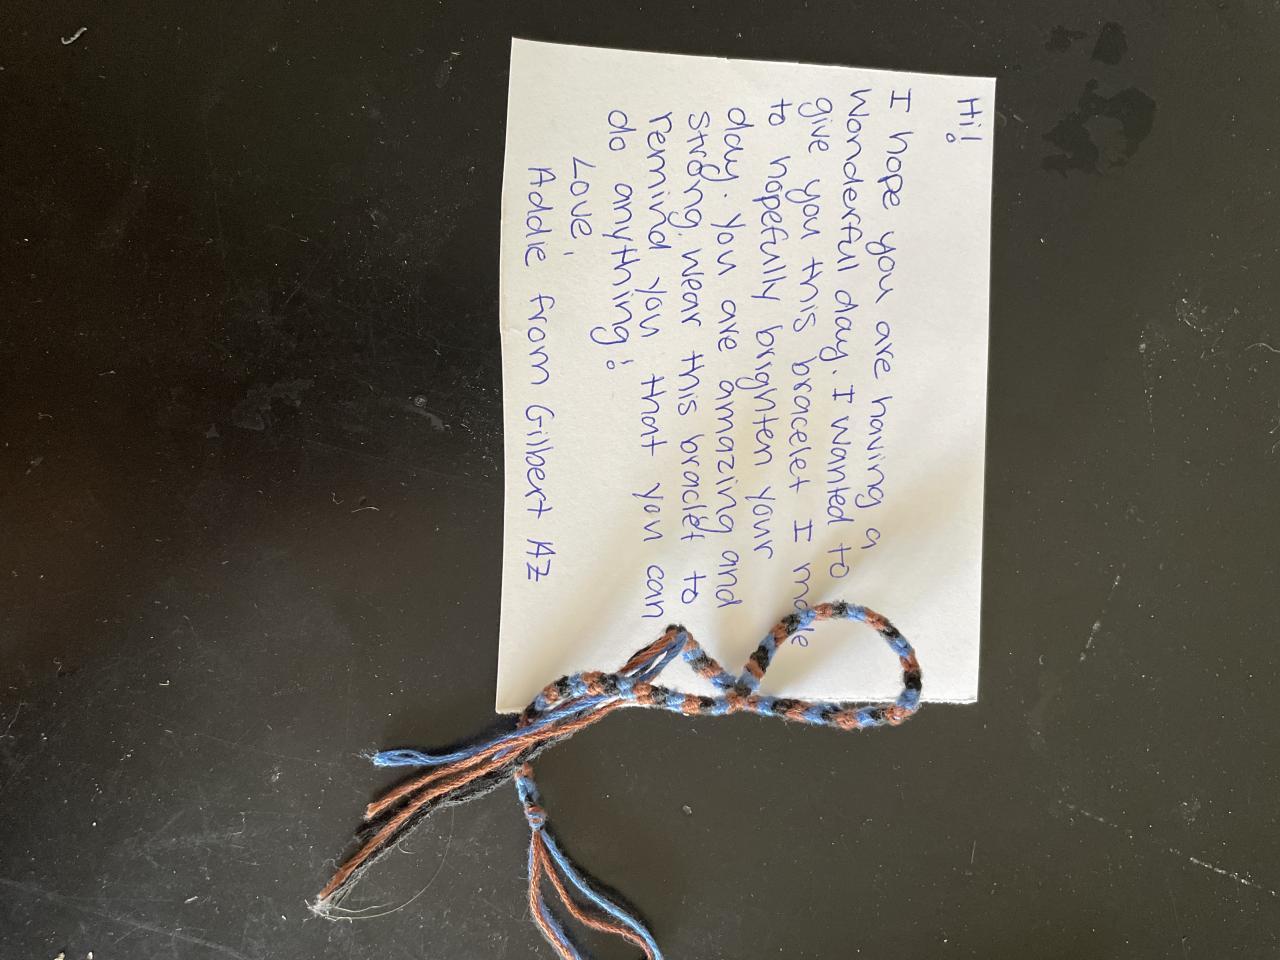 Hi!
I hope you are having a
wonderful day. I wanted to
give you this bracelet I made
to hopefully brighten your
day. You are amazing and
strong. Wear this braclet to
remind you that you can
do anything!
Love,
Addie from Gilbert AZ